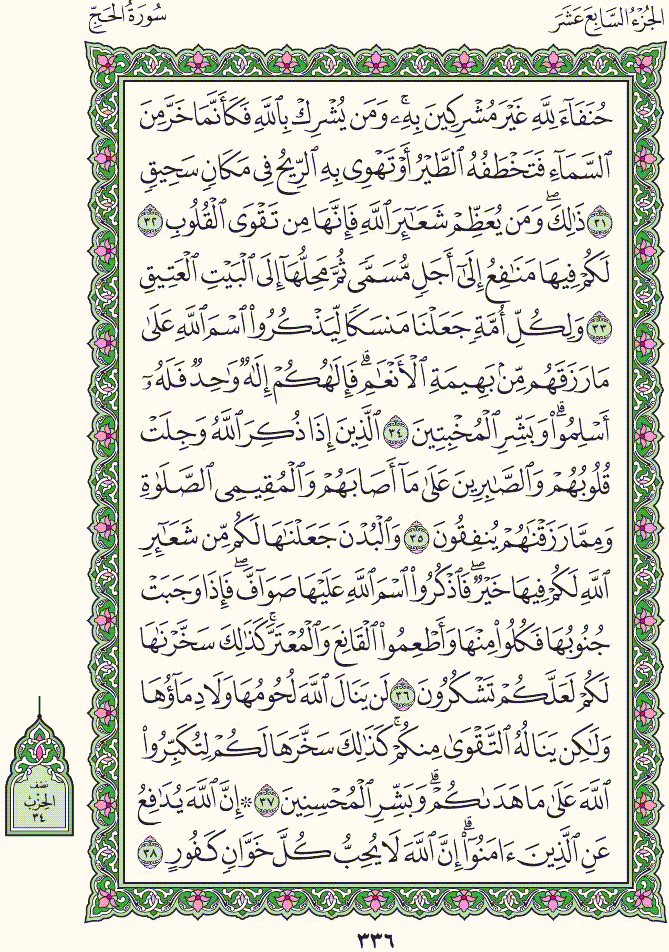 الجُزْءُ السَّابِعَ عَشَرَ
سُورَةُ الحَجِّ
حُنَفَآءَ لِلَّهِ غَيْرَ مُشْرِكِينَ بِهِۦۚ وَمَن يُشْرِكْ بِٱللَّهِ فَكَأَنَّمَا خَرَّ مِنَ
ٱلسَّمَآءِ فَتَخْطَفُهُ ٱلطَّيْرُ أَوْ تَهْوِى بِهِ ٱلرِّيحُ فِى مَكَانٍ سَحِيقٍ
٣١ ذَٰلِكَۖ وَمَن يُعَظِّمْ شَعَٰٓئِرَ ٱللَّهِ فَإِنَّهَا مِن تَقْوَى ٱلْقُلُوبِ ٣٢
لَكُمْ فِيهَا مَنَٰفِعُ إِلَىٰٓ أَجَلٍ مُّسَمًّى ثُمَّ مَحِلُّهَآ إِلَى ٱلْبَيْتِ ٱلْعَتِيقِ
٣٣ وَلِكُلِّ أُمَّةٍ جَعَلْنَا مَنسَكًا لِّيَذْكُرُوا۟ ٱسْمَ ٱللَّهِ عَلَىٰ
مَا رَزَقَهُم مِّنۢ بَهِيمَةِ ٱلْأَنْعَٰمِۗ فَإِلَٰهُكُمْ إِلَٰهٌ وَٰحِدٌ فَلَهُۥٓ
أَسْلِمُوا۟ۗ وَبَشِّرِ ٱلْمُخْبِتِينَ ٣٤ ٱلَّذِينَ إِذَا ذُكِرَ ٱللَّهُ وَجِلَتْ
قُلُوبُهُمْ وَٱلصَّٰبِرِينَ عَلَىٰ مَآ أَصَابَهُمْ وَٱلْمُقِيمِى ٱلصَّلَوٰةِ
وَمِمَّا رَزَقْنَٰهُمْ يُنفِقُونَ ٣٥ وَٱلْبُدْنَ جَعَلْنَٰهَا لَكُم مِّن شَعَٰٓئِرِ
ٱللَّهِ لَكُمْ فِيهَا خَيْرٌۖ فَٱذْكُرُوا۟ ٱسْمَ ٱللَّهِ عَلَيْهَا صَوَآفَّۖ فَإِذَا وَجَبَتْ
جُنُوبُهَا فَكُلُوا۟ مِنْهَا وَأَطْعِمُوا۟ ٱلْقَانِعَ وَٱلْمُعْتَرَّۚ كَذَٰلِكَ سَخَّرْنَٰهَا
لَكُمْ لَعَلَّكُمْ تَشْكُرُونَ ٣٦ لَن يَنَالَ ٱللَّهَ لُحُومُهَا وَلَا دِمَآؤُهَا
وَلَٰكِن يَنَالُهُ ٱلتَّقْوَىٰ مِنكُمْۚ كَذَٰلِكَ سَخَّرَهَا لَكُمْ لِتُكَبِّرُوا۟
ٱللَّهَ عَلَىٰ مَا هَدَىٰكُمْۗ وَبَشِّرِ ٱلْمُحْسِنِينَ ٣٧ ۞ إِنَّ ٱللَّهَ يُدَٰفِعُ
عَنِ ٱلَّذِينَ ءَامَنُوٓا۟ۗ إِنَّ ٱللَّهَ لَا يُحِبُّ كُلَّ خَوَّانٍ كَفُورٍ ٣٨
نصف
الحزب
٣٤
٣٣٦